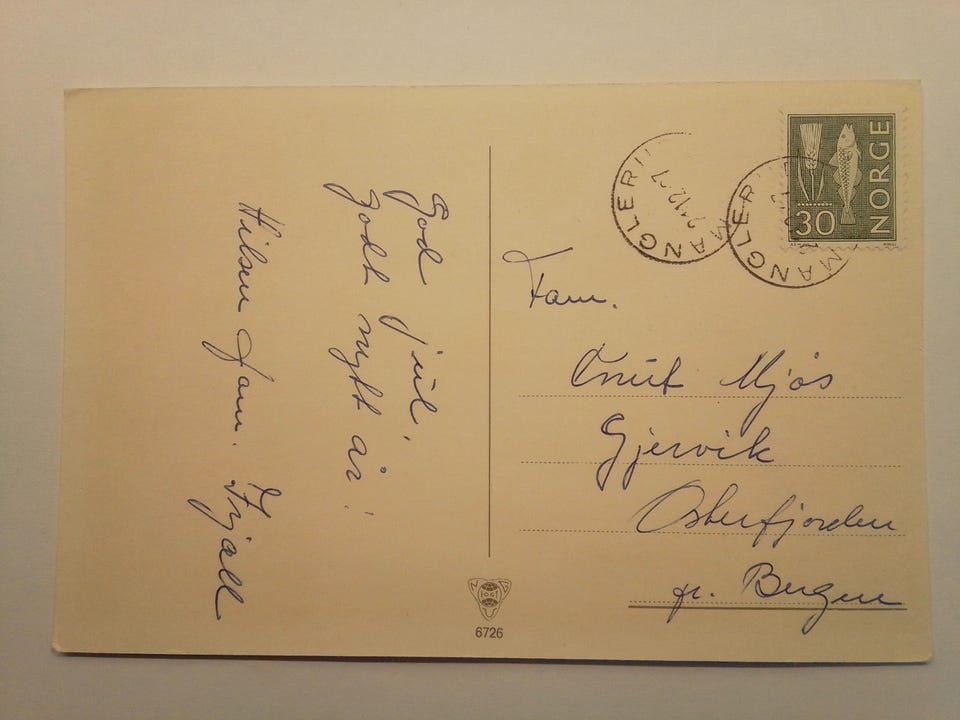 God jul,
godt nytt år!
Hilsen fam. Fjall
MANGLERUD
21.12.
MANGLERUD
30
NORGE
Fam.
Knut Mjøs
Gjervik
Osterfjorden
pr. Bergen
6726